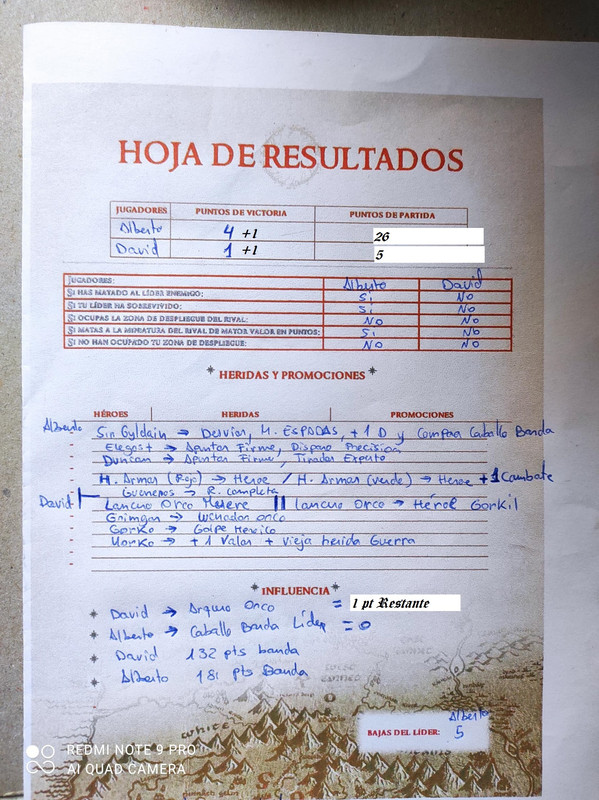 HOJA DE RESULTADOS
JUGADORES PUNTOS DE VICTORIA PUNTOS DE PARTIDA
Alberto 4 +1 26
David 1 +1 5
JUGADORES: Alberto David
SI HAS MATADO AL LÍDER ENEMIGO: Si No
SI TU LÍDER HA SOBREVIVIDO: Si No
SI OCUPAS LA ZONA DE DESPLIEGUE DEL RIVAL: No No
SI MATAS A LA MINIATURA DEL RIVAL DE MAYOR VALOR EN PUNTOS: Si No
SI NO HAN OCUPADO TU ZONA DE DESPLIEGUE: No No
HERIDAS Y PROMOCIONES
HÉROES HERIDAS PROMOCIONES
Alberto Sir Gyldain → Desviar, M. ESPADAS, +1 D y Compra Caballo Banda
→ Apuntar Firme, Disparo Precisión
Duncan → Apuntar Firme, Tirador Experto
H. Armas (Rojo) → Heroe / H. Armas (verde) → Heroe +1 Combate
→ R. completa
David Lancero Orco Muere || lancero Orco → Héroe Gorkil
Grimgor → Luchador orco
Gorko → Golpe Heroico
Morko → +1 Valor + Vieja herida Guerra
INFLUENCIA
David → Arquero Orco = 1 pt Restante
Alberto → Caballo Banda Líder = 0
David 132 pts banda
Alberto 181 pts Banda
BAJAS DEL LÍDER: Alberto 5
REDMI NOTE 9 PRO
AI QUAD CAMERA